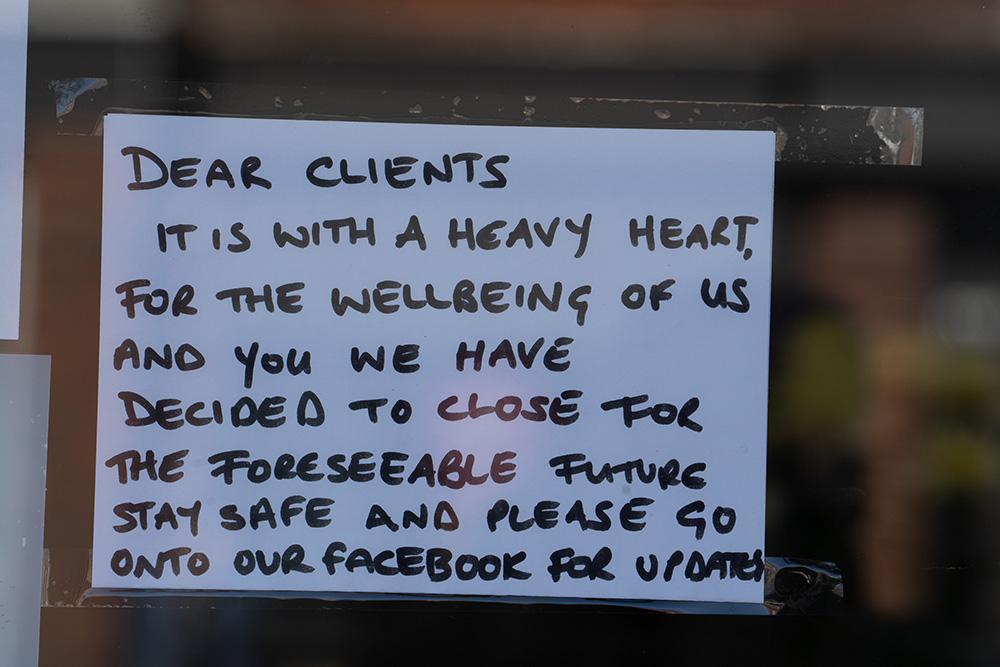 DEAR CLIENTS
IT IS WITH A HEAVY HEART,
FOR THE WELLBEING OF US
AND YOU WE HAVE
DECIDED TO CLOSE FOR
THE FORESEEABLE FUTURE
STAY SAFE AND PLEASE GO
ONTO OUR FACEBOOK FOR UPDATES